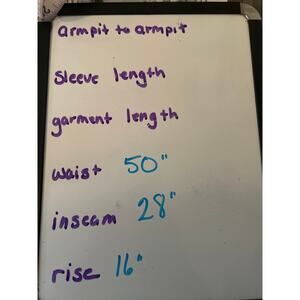 armpit to armpit
Sleeve length
garment length
waist 50"
inseam 28"
rise 16"